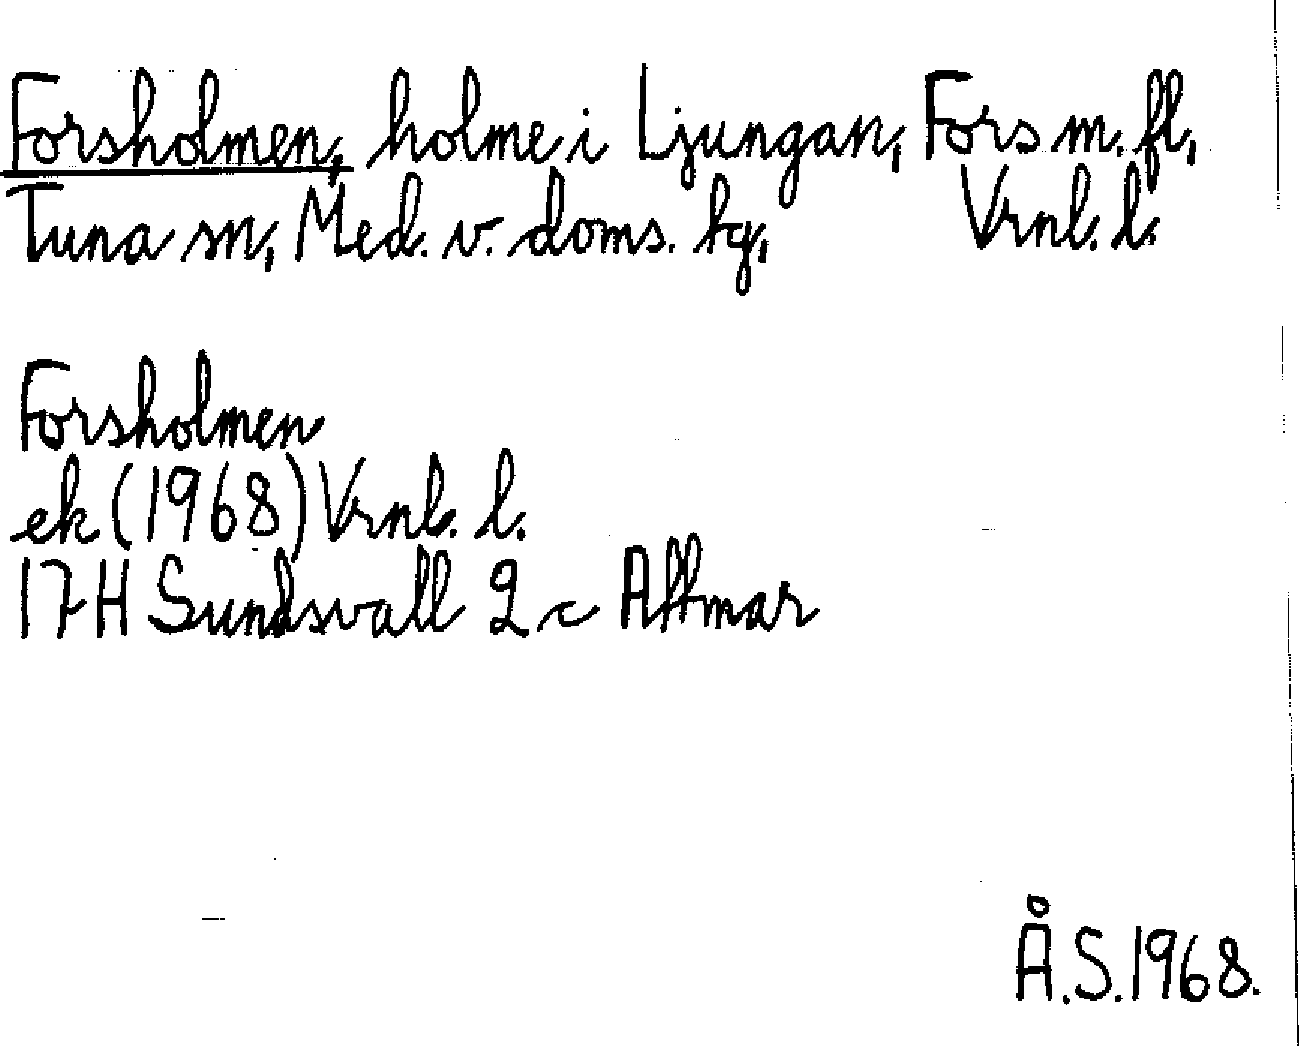 Forsholmen, holme i Ljungan, Fors m. fl,
Tuna sn, Med. v. doms. hg, Vrnl. l.
Forsholmen
ek (1968) Vrnl. l.
17H Sundsvall 2 c Attmar
Å.S.1968.